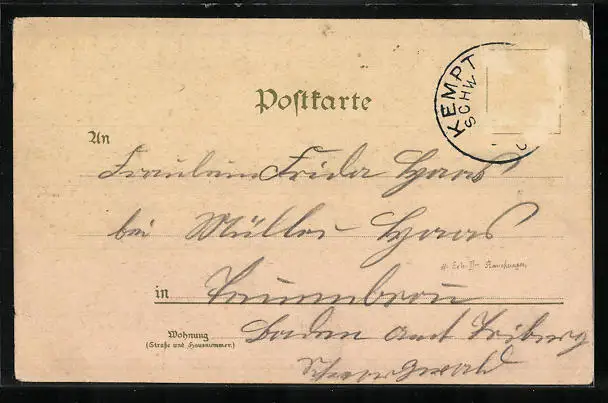 KEMPT
SCHW
Postkarte
An
Fräulein Frida Haas
bei Müller Haas
in
Wohnung
(Straße und Hausnummer.)
Baden Amt Triberg
Schwarzwald